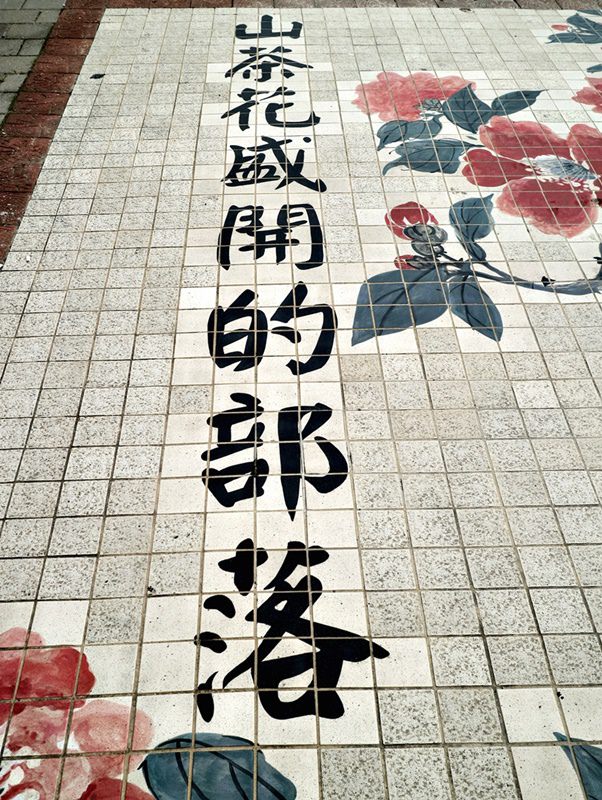 山茶花盛開的部落